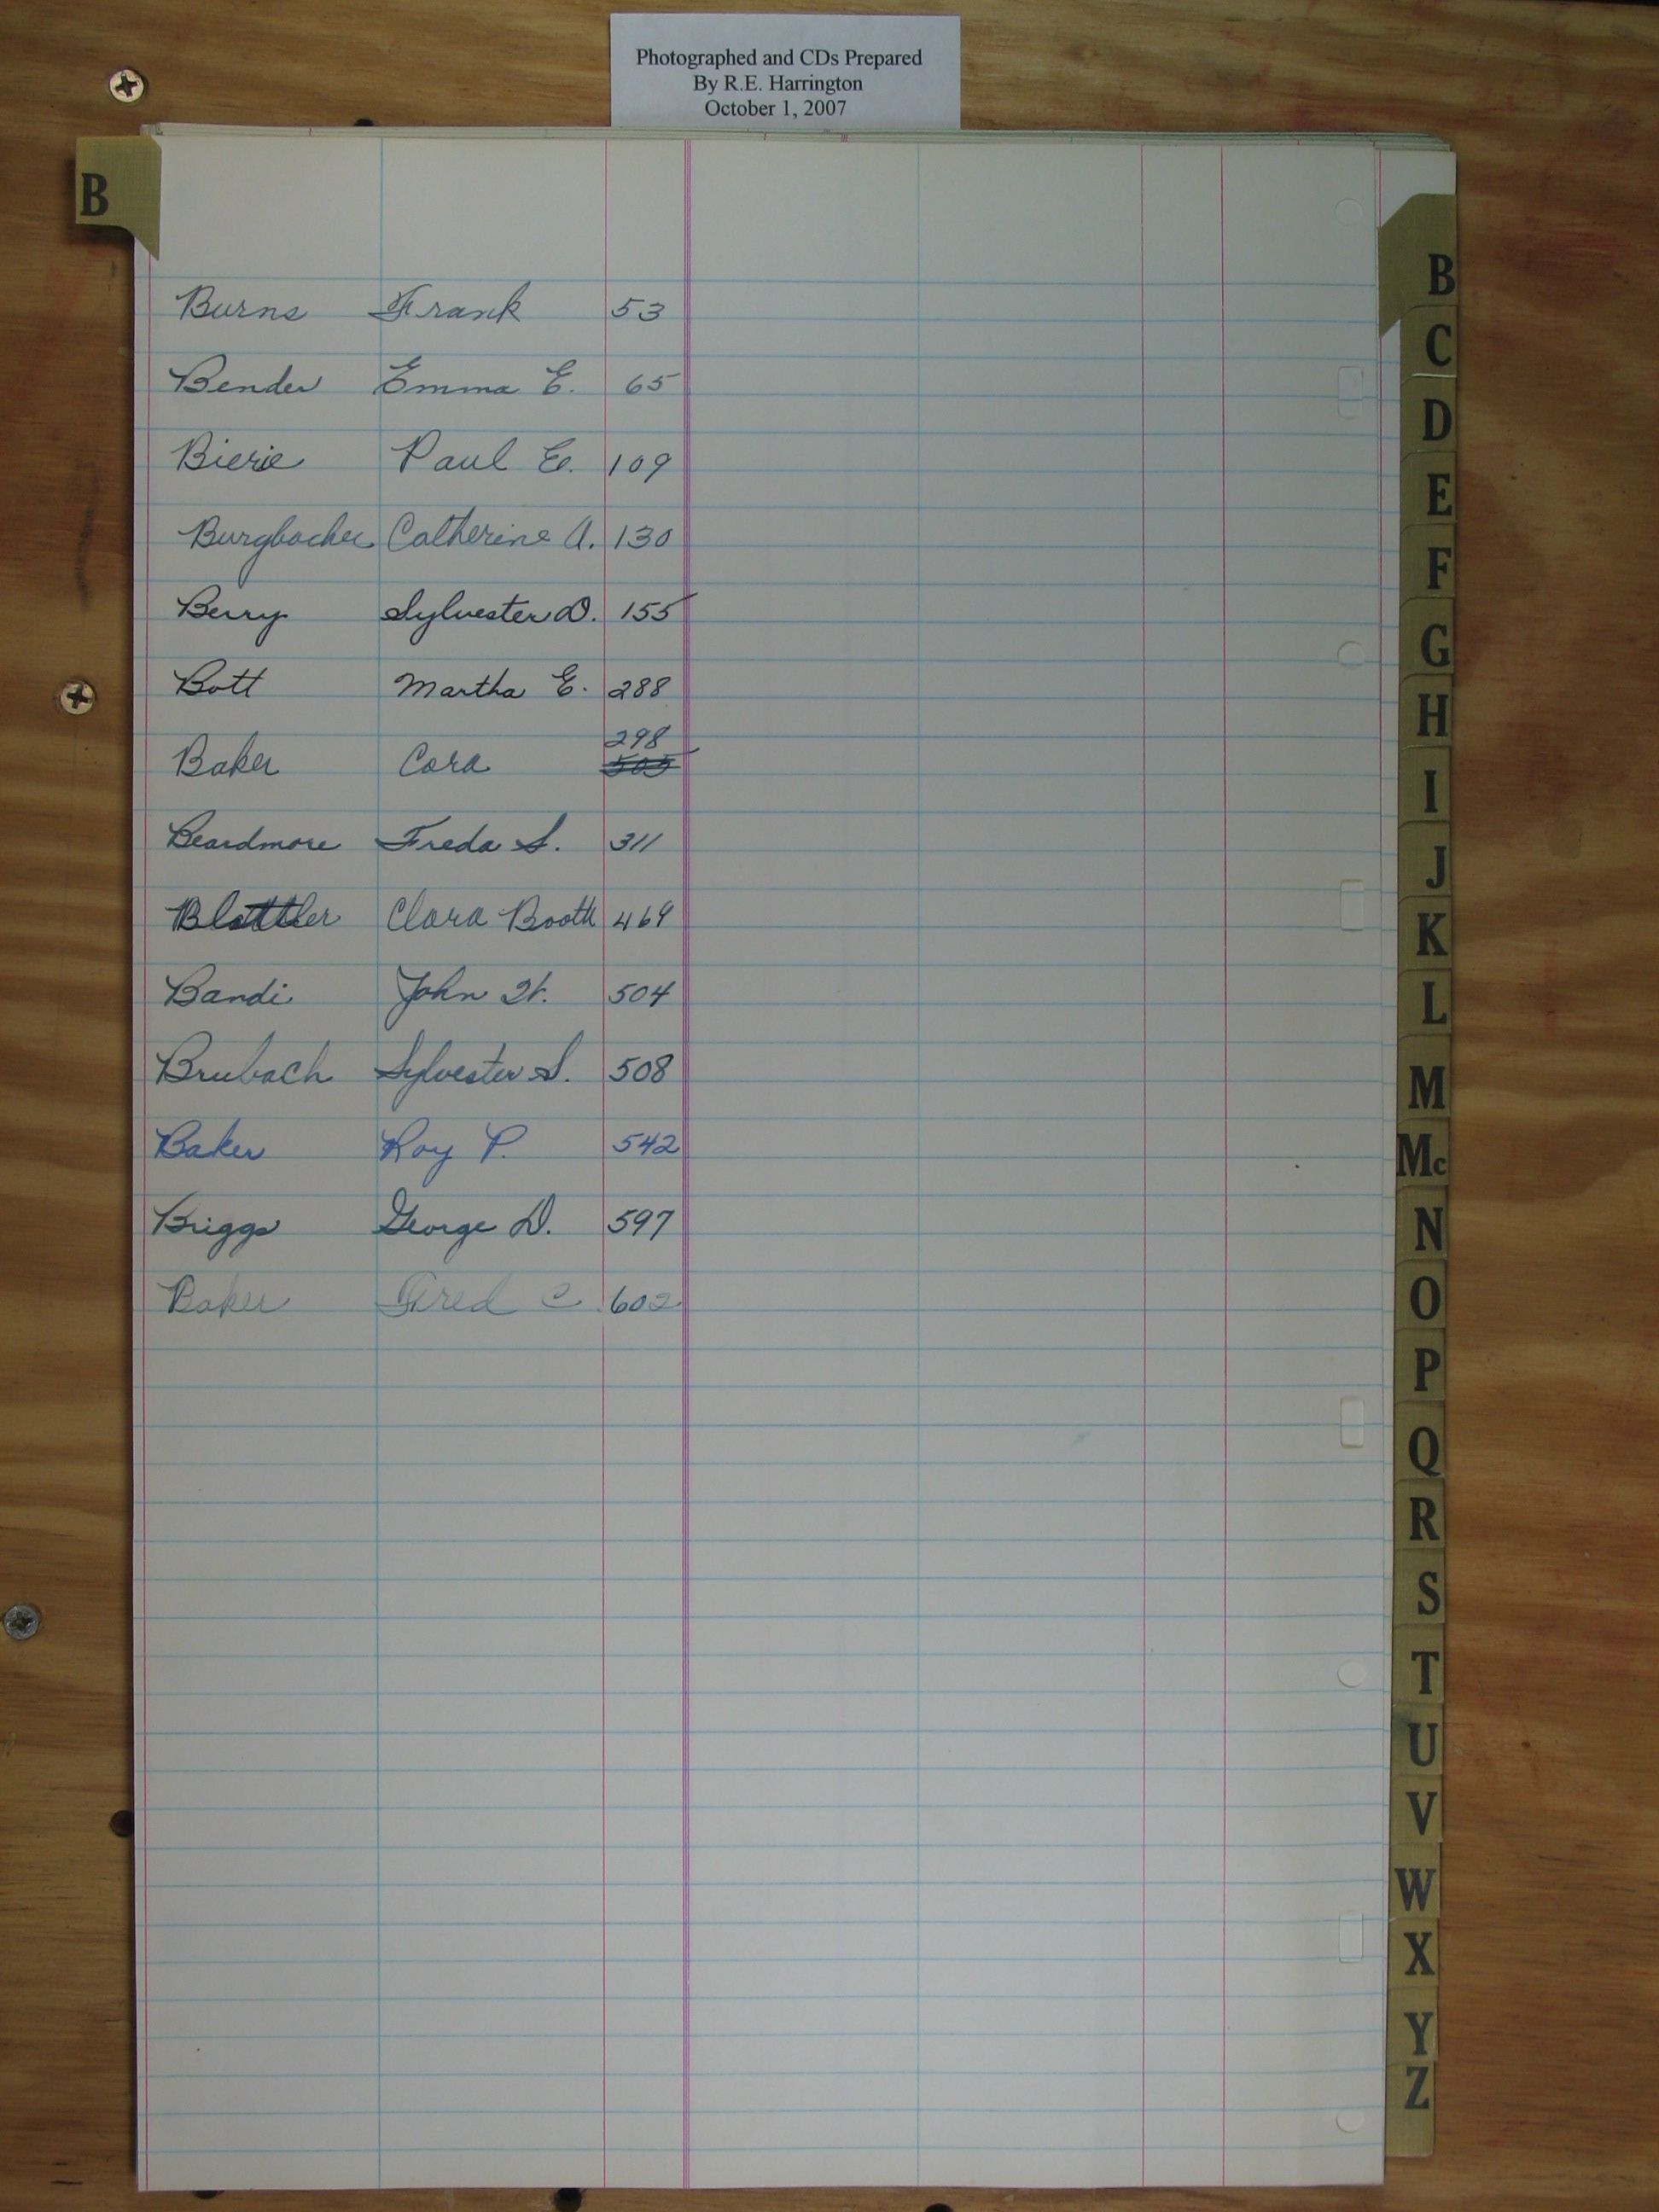 Photographed and CDs Prepared
By R.E. Harrington
October 1, 2007
B
Burns Frank 53
Bender Emma E. 65
Bierie Paul E. 109
Burgbacher Catherine A. 130
Berry Sylvester D. 155
Bott Martha E. 288
298
Baker Cora 505
Beardmore Freda S. 311
Blattler Clara Booth 469
Bandi John W. 504
Brubach Sylvester S. 508
Baker Roy P. 542
Briggs George D. 597
Baker Fred C 602
B
C
D
E
F
G
H
I
J
K
L
M
Mc
N
O
P
Q
R
S
T
U
V
W
X
Y
Z